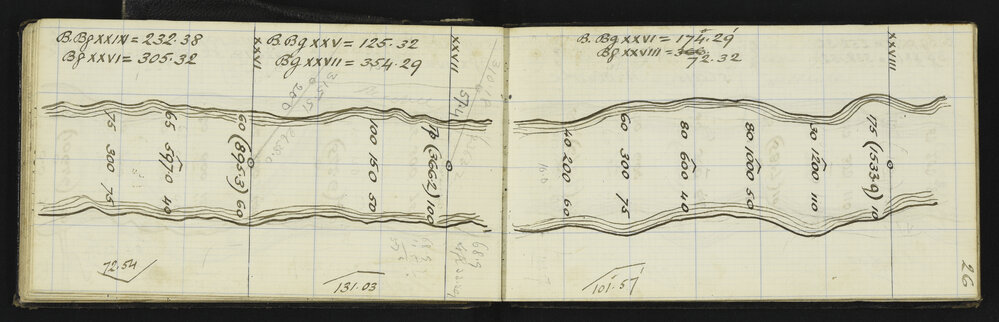 B.Bg XXIV = 232.38
Bg XXVI = 305.32
XXVI
B.Bg XXV = 125.32
Bg XXVII = 354.29
XXVII
B.Bg XXVI = 174.29'
Bg XXVIII = 366.
72.32
XXVIII
75 300 75
65 597.0 40
60 (895.3) 60
100 150 50
70 (366.2) 100
40 200 60
60 300 75
80 600 40
80 1000 50
30 1200 110
175 (1533.9) 10
315.51
57.4
689
72.54
131.03
101.57'
26